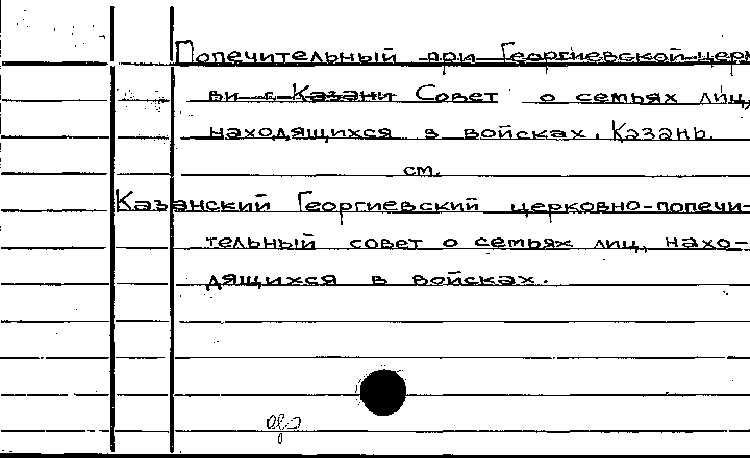 Попечительный при Георгиевской церк
ви г. Казани Совет о семьях лиц,
находящихся в войсках. Казань.
см.
Казанский Георгиевский церковно-попечи-
тельный совет о семьях лиц, нахо-
дящихся в войсках.